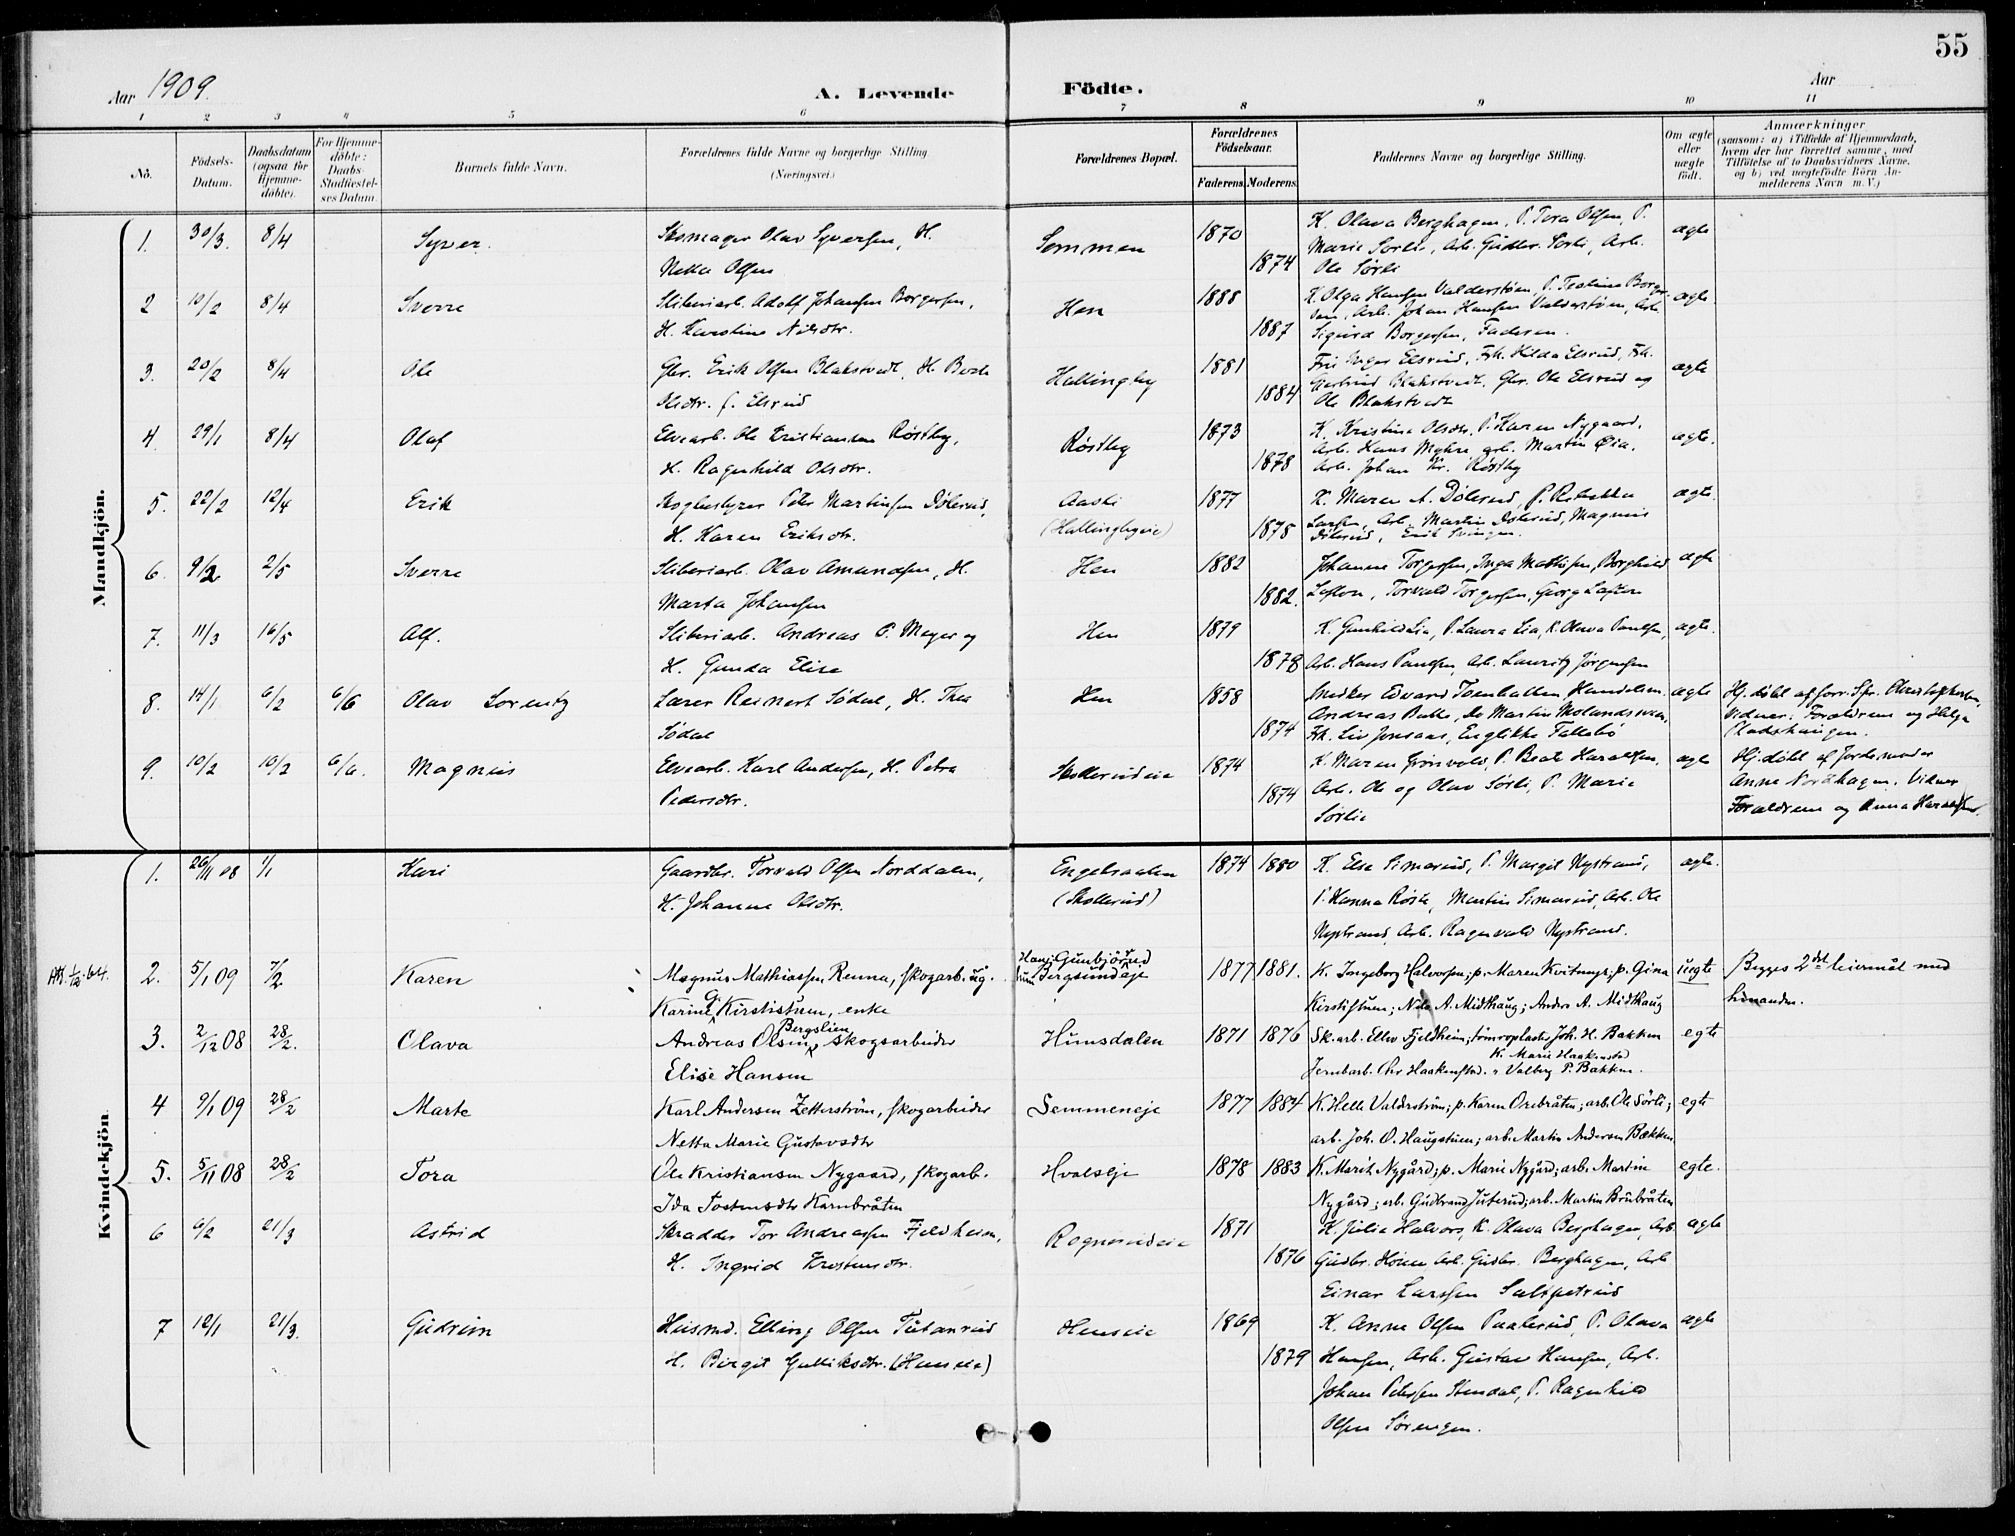 55
Aar 1909.
A. Levende Födte.
Aar
1 2 3 4 5 6 7 8 9 10 11
No.
Födsels-Datum.
Daabsdatum (ogsaa for Hjemme-döbte).
For Hjemme-döbte: Daabs-Stadfæstel-ses Datum.
Barnets fulde Navn.
Forældrenes fulde Navne og borgerlige Stilling.
(Næringsvei.)
Forældrenes Bopæl.
Forældrenes Födselsaar.
Faderens. Moderens.
Faddernes Navne og borgerlige Stilling.
Om ægte eller uægte födt.
Anmærkninger
(saasom: a) i Tilfælde af Hjemmedaab,
hvem der har forrettet samme, med
Tilföielse af to Daabsvidners Navne,
og b) ved uægtefödte Börn An-
melderens Navn m. V.)
Mandkjön.
1. 30/3. 8/4 Syver. Skomager Olav Syversen, H. Semmen 1870 K. Olava Berghagen, P. Tora Olsen, P. ægte
Marie Sorli, Arb. Gudbr. Sorli, Arb.
Netta Olsen 1874 Ole Sörli
2 10/2 8/4 Sverre Sliberiarb. Adolf Johansen Borgersen, Hen 1888 K. Olga Hansen Valderstöen, P. ægte
H. Karstine Nilsdtr. 1887 Arb. Johan Hansen Valderstöen, Arb.
Sigurd Borgersen, Faderen.
3. 20/2 8/4 Ole Gbr. Erik Olsen Blakstvedt, H. Hallingby 1881 Fru Inger Elsrud, Frk. Hilda Elsrud, Frk. ægte
Olsdtr. f. Elsrud 1884 Blakstvedt, Gbr. Ole Elsrud og
Ole Blakstvedt
4. 29/1 8/4 Olaf Elvearb. Ole Kristiansen Röstby, Röstby 1873 K. Kristine Olsdtr. P. Karen Nygaard, ægte.
H. Ragnhild Olsdtr. 1878 Arb. Hans Myhre, arb. Martin Öia,
Arb. Johan Kr. Röstby
5. 22/2 12/4 Erik Skogbestyrer Peter Martinsen Dölerud, Aasli 1877 K. Maren A. Dölerud, P. Rebekka ægte.
H. Karen Eriksdtr. (Hallingbyeie) 1878 Larsen, Arb. Martin Dölerud, Magnus
Dölerud, Erik Svingen.
6. 9/2 2/5 Sverre Sliberiarb. Olav Amundsen, H. Hen 1882 Johanne Torgersen, Inga Mathisen, Borghild ægte
Marta Johansen 1882. Loften, Torvald Torgersen, Georg Loften
7. 11/3 16/5 Alf. Sliberiarb. Andreas P. Meyer og Hen 1879 K. Gunhild Lia, P. Laura Lia, K. Olava Paulsen, ægte.
H. Gunda Elise 1878 Arb. Hans Paulsen, Arb. Lauritz Jörgensen
8. 14/1 6/2 6/6 Olav Lorentz Lærer Reinert Södal, H. Thea Hen 1858 Snedker Edvard Toenhatten, ægte Hj. döbt af forr. Spr.
Södal 1874 Andreas Bakke, Do Martin Molandsveen, Vidner: Forældrene og Helga
Frk. Liv Jonsaas, Englikke Tallebö
9. 10/2 10/2 6/6. Magnus Elvearb. Karl Andersen, H. Petra Skollerudeie 1874 K. Maren Grönvold, P. Beate Haraldsen, ægte Hj. döbt af Jordemoder
Pedersdtr. 1874 Arb. Ole og Olav Sörli, P. Marie Anne Nordhagen. Vidner
Sörlie Forældrene og Anna Haraldsen.
Kvindekjön.
1. 26/11 08 1/1 Kari Gaardbr. Torvald Olsen Norddalen, Engelsaalen 1874 1880 K. Else Simarud, P. Margit Nystrand, ægte.
H. Johanne Olsdtr. (Skollerud) P. Hanna Röste, Martin Simarud, Arb. Ole
Nystrand, Arb. Ragnvald Nystrand.
1/12.64. 2. 5/1 09 7/2 Karen Magnus Mathiassen Renna, skogarb. ug. Han: Gunbjörrud 1877 1881. K. Ingeborg Halvorsen; p. Maren Kvitmyr; p. Gina uegte Begges 2det leiermål med
Karine G. Kirstistuen, enke hun Bergsundeje Kirstistuen; Nils A. Midthaug; Anders A. Midthaug hinanden.
3. 2/12 08 28/2. Olava Andreas Olsen Bergslien, skogsarbeider Hunsdalen 1871 1876 Sk.arb. Ellev Fjeldheim; Joh. H. Bakken egte
Elise Hansen Jernbarb. Chr. Haakenstad. K. Marie Haakenstad " Valborg P. Bakken.
4 9/1 09 28/2 Marte Karl Andersen Zetterström, skogarbeider Semmeneje 1877 1884 K. Helle Valderström; p. Karen Orebråten; arb. Ole Sörli; egte
Netta Marie Gustavsdtr arb. Joh. O. Haugstuen; arb. Martin Andersen Bækken
5. 5/11 08 28/2 Tora Ole Kristiansen Nygaard, skogarb. Hvalseje 1878 1883 K. Marit Nygård; p. Marie Nygård; arb. Martin egte.
Ida Tostensdtr Kambråten Nygård; arb. Gudbrand Juterud; arb. Martin Brubråten
6 6/2 21/3 Astrid Skrædder Tor Andreassen Fjeldheim, Rognerudeie 1871 K. Julia Halvors, K. Olava Berghagen, Arb. ægte
H. Ingrid Torstensdtr. 1876 Gudbr. Hönen Arb. Gudbr. Berghagen, Arb
Einar Larsen Saltpetrud
7 12/1 21/3. Gudrun Husmd. Elling Olsen Tutanrud Henseie 1869 K. Anne Olsen Paalerud, P. Olava ægte
H. Birgit Gulliksdtr. (Henseie) 1879 Hansen, Arb. Gustav Hansen, Arb.
Johan Petersen Stendal, P. Ragnhild
Olsen Sörengen.